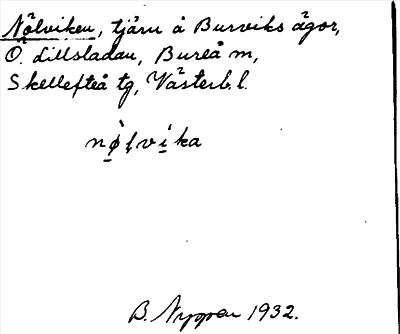 Nölviken, tjärn å Burviks ägor,
Ö. Lillsladan, Bureå m,
Skellefteå tg, Västerb. l.
nø̀lvíka
1932.